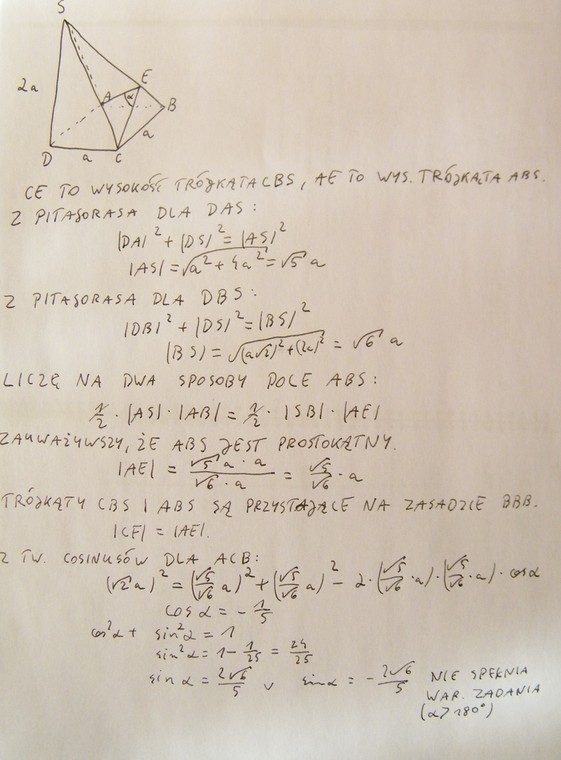 S
2a
E
A
α
B
a
D
a
C
CE TO WYSOKOŚĆ TRÓJKĄTA CBS, AE TO WYS. TRÓJKĄTA ABS.
Z PITAGORASA DLA DAS:
|DA|² + |DS|² = |AS|²
|AS| = √(a² + 4a²) = √5 a
Z PITAGORASA DLA DBS:
|DB|² + |DS|² = |BS|²
|BS| = √((a√2)² + (2a)²) = √6 a
LICZĘ NA DWA SPOSOBY POLE ABS:
1/2 · |AS| · |AB| = 1/2 · |SB| · |AE|
ZAUWAŻYWSZY, ŻE ABS JEST PROSTOKĄTNY.
|AE| = (√5 a · a)/(√6 · a) = √5/√6 · a
TRÓJKĄTY CBS I ABS SĄ PRZYSTAJĄCE NA ZASADZIE BBB.
|CE| = |AE|.
Z TW. COSINUSÓW DLA ACB:
(√2 a)² = (√5/√6 a)² + (√5/√6 a)² - 2 · (√5/√6 · a) · (√5/√6 · a) · cosα
cos α = - 1/5
cos²α + sin²α = 1
sin²α = 1 - 1/25 = 24/25
sin α = 2√6/5 v sinα = - 2√6/5 NIE SPEŁNIA
WAR. ZADANIA
(α > 180°)